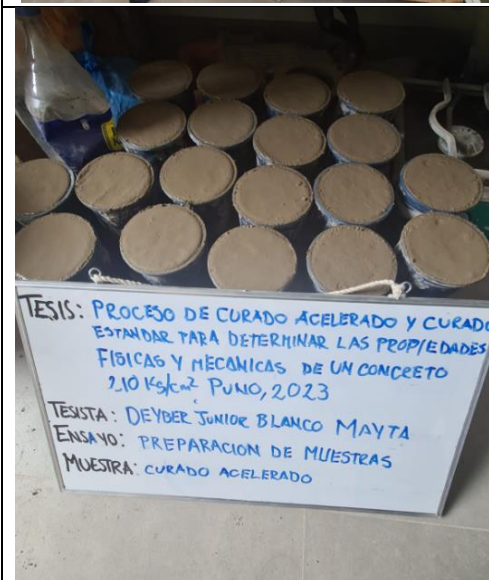 TESIS: PROCESO DE CURADO ACELERADO Y CURADO
ESTANDAR PARA DETERMINAR LAS PROPIEDADES
FISICAS Y MECANICAS DE UN CONCRETO
210 Kg/cm2 PUNO, 2023
TESISTA: DEYBER JUNIOR BLANCO MAYTA
ENSAYO: PREPARACION DE MUESTRAS
MUESTRA: CURADO ACELERADO